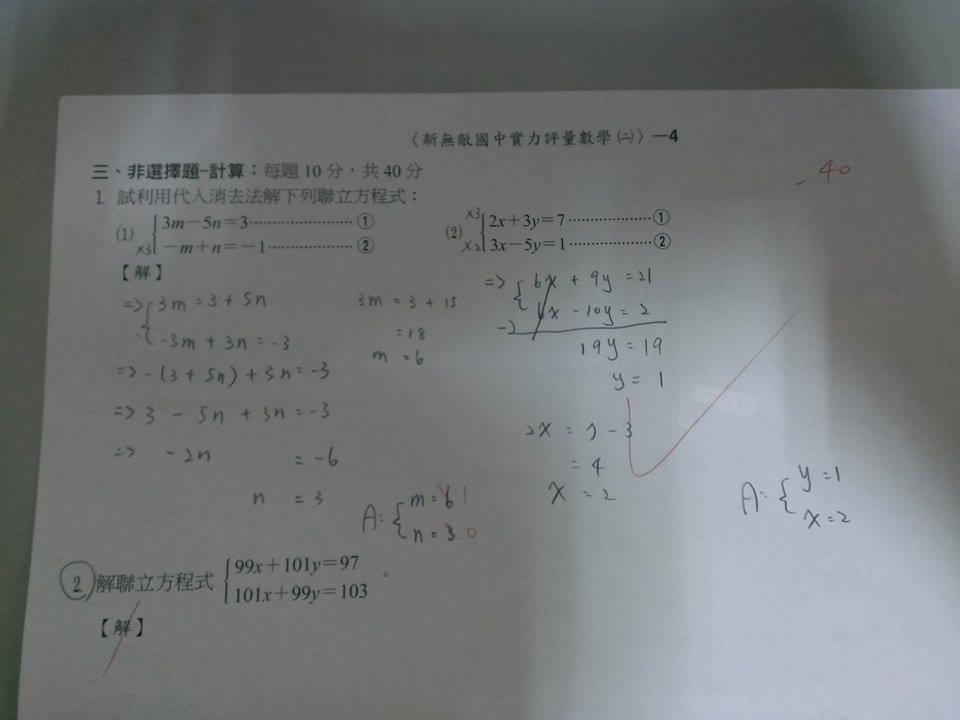 〈新無敵國中實力評量數學㈡〉—4
-40
三、非選擇題-計算：每題10分，共40分
1. 試利用代入消去法解下列聯立方程式：
(1) 3m－5n＝3 ………………… ①
×3 －m＋n＝－1 ……………… ②
(2) ×3 2x＋3y＝7 ……………… ①
×2 3x－5y＝1 ……………… ②
【解】
=> { 3m = 3 + 5n
-3m + 3n = -3
=> -(3 + 5n) + 3n = -3
=> 3 - 5n + 3n = -3
=> -2n = -6
n = 3
3m = 3 + 15
= 18
m = 6
A: { m = 6 1
n = 3 0
=> { 6x + 9y = 21
-) 6x - 10y = 2
19y = 19
y = 1
2x = 7 - 3
= 4
x = 2
A: { y = 1
x = 2
2 解聯立方程式 { 99x＋101y＝97
101x＋99y＝103 。
【解】